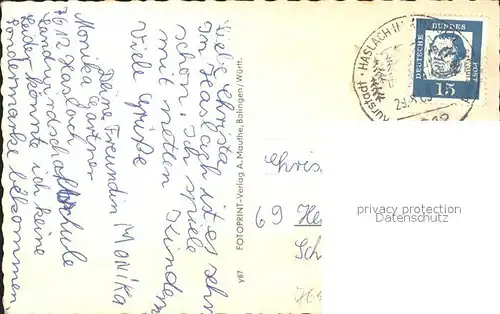 Liebe Christa
Im Haslach ist es sehr
schön. Ich spiele
mit netten Kindern
Viele Grüße
Deine Freundin MONIKA
Monika Gärtner
7612 Haslach
Landwirdschaftschule
Leider konnte ich keine
bekommen
FOTOPRINT-Verlag A. Mauthe, Balingen/Württ.
y87
HASLACH
DEUTSCHE BUNDESPOST
15
Chris
69 He
Sch
privacy protection
Datenschutz